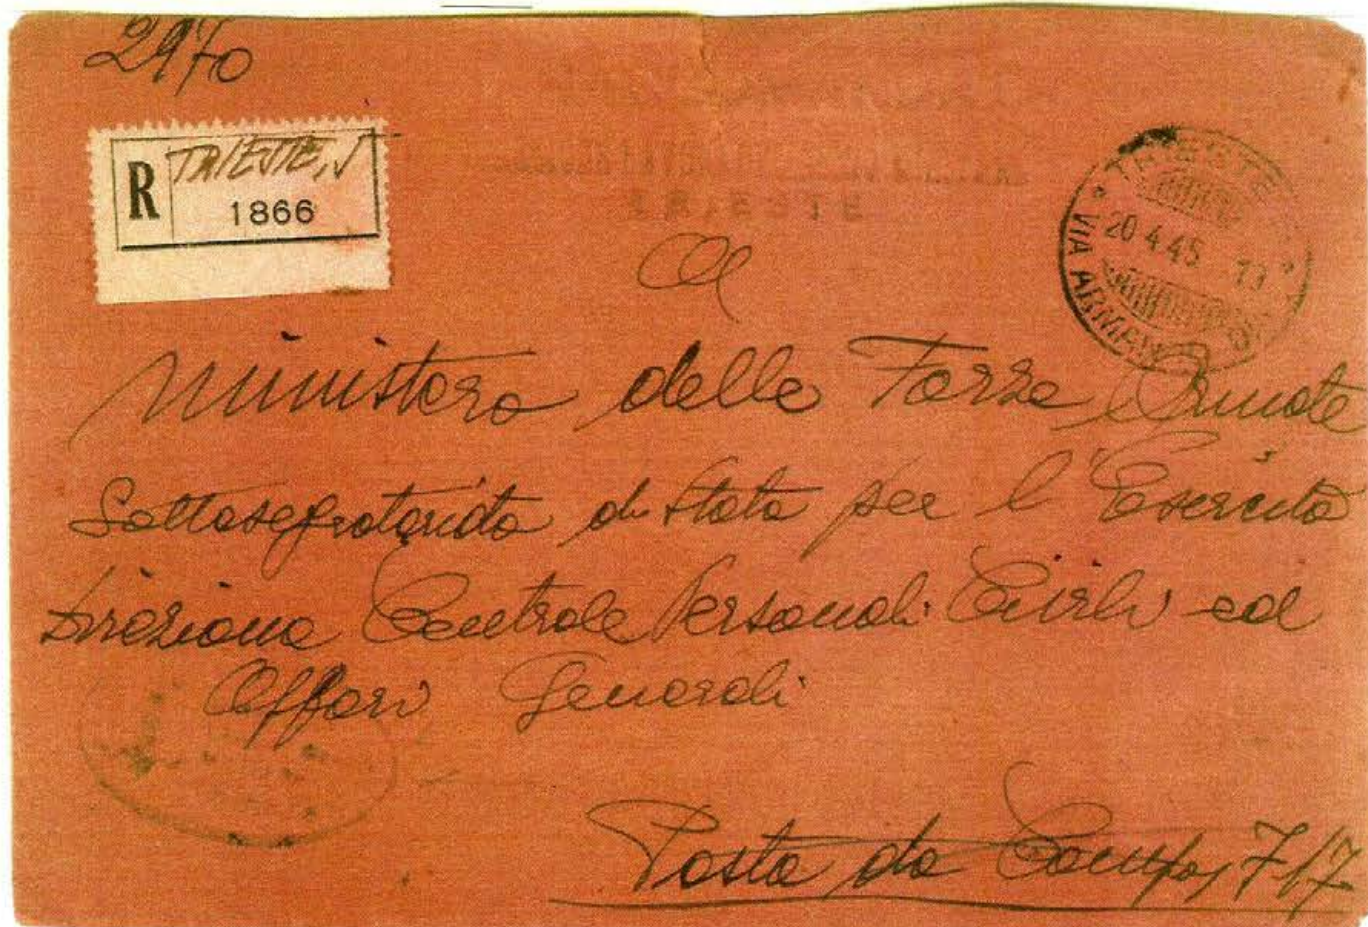 2970
R TRIESTE, 5
1866
TRIESTE
TRIESTE
20 4 45 19
VIA ARMAN
Al
Ministero delle Forze Armate
Sottosegretariato di Stato per l'Esercito
Direzione Centrale Personali Civili ed
Affari Generali
Posta da Campo, 717